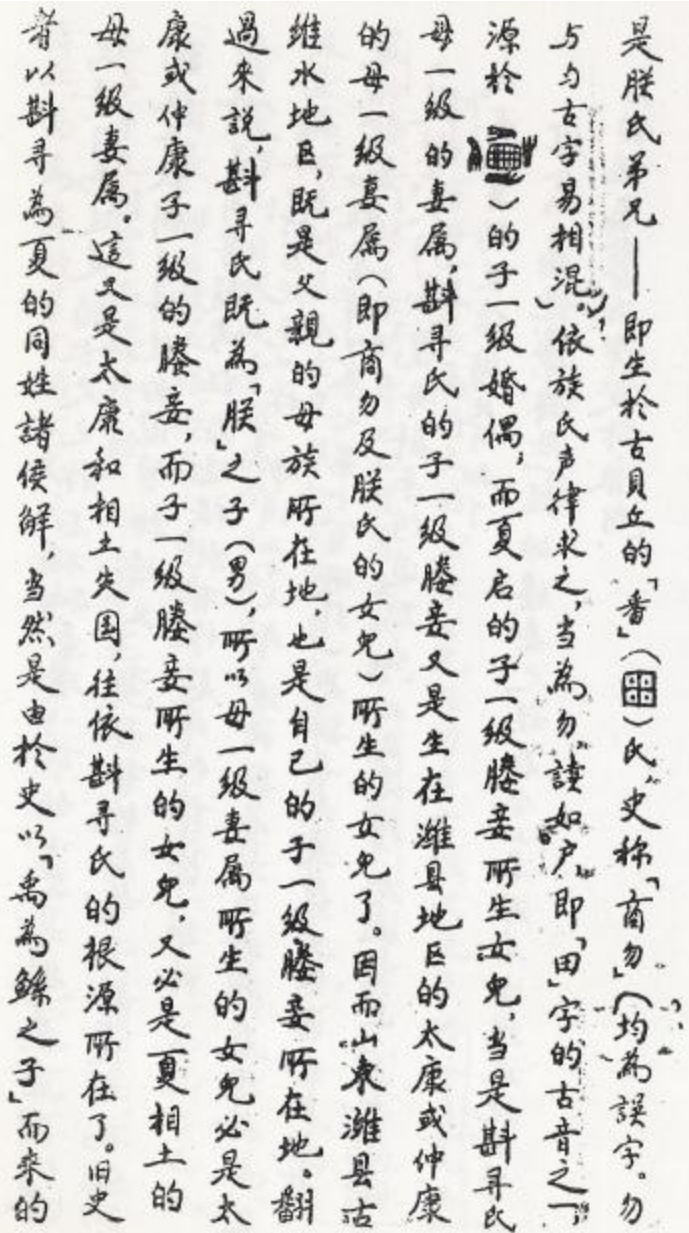 是朕氏弟兄——即生於古貝丘的「番」(田)氏,史称「商勿」(均為誤字。勿
与勻古字易相混)。依族氏声律求之,当為勿,讀如户,即「田」字的古音之一,
源於 )的子一級婚偶,而夏启的子一級媵妾所生女兒,当是斟寻氏
母一級的妻属,斟寻氏的子一級媵妾又是生在潍县地区的太康或仲康
的母一級妻属(即商勿及朕氏的女兒)所生的女兒了。因而山東潍县古
维水地区,既是父親的母族所在地,也是自己的子一級媵妾所在地。翻
過來説,斟寻氏既為「朕」之子(男),所以母一級妻属所生的女兒必是太
康或仲康子一級的媵妾,而子一級媵妾所生的女兒,又必是夏相土的
母一級妻属。這又是太康和相土失国,往依斟寻氏的根源所在了。旧史
者以斟寻為夏的同姓諸侯解,当然是由於史以「禹為鲧之子」而來的